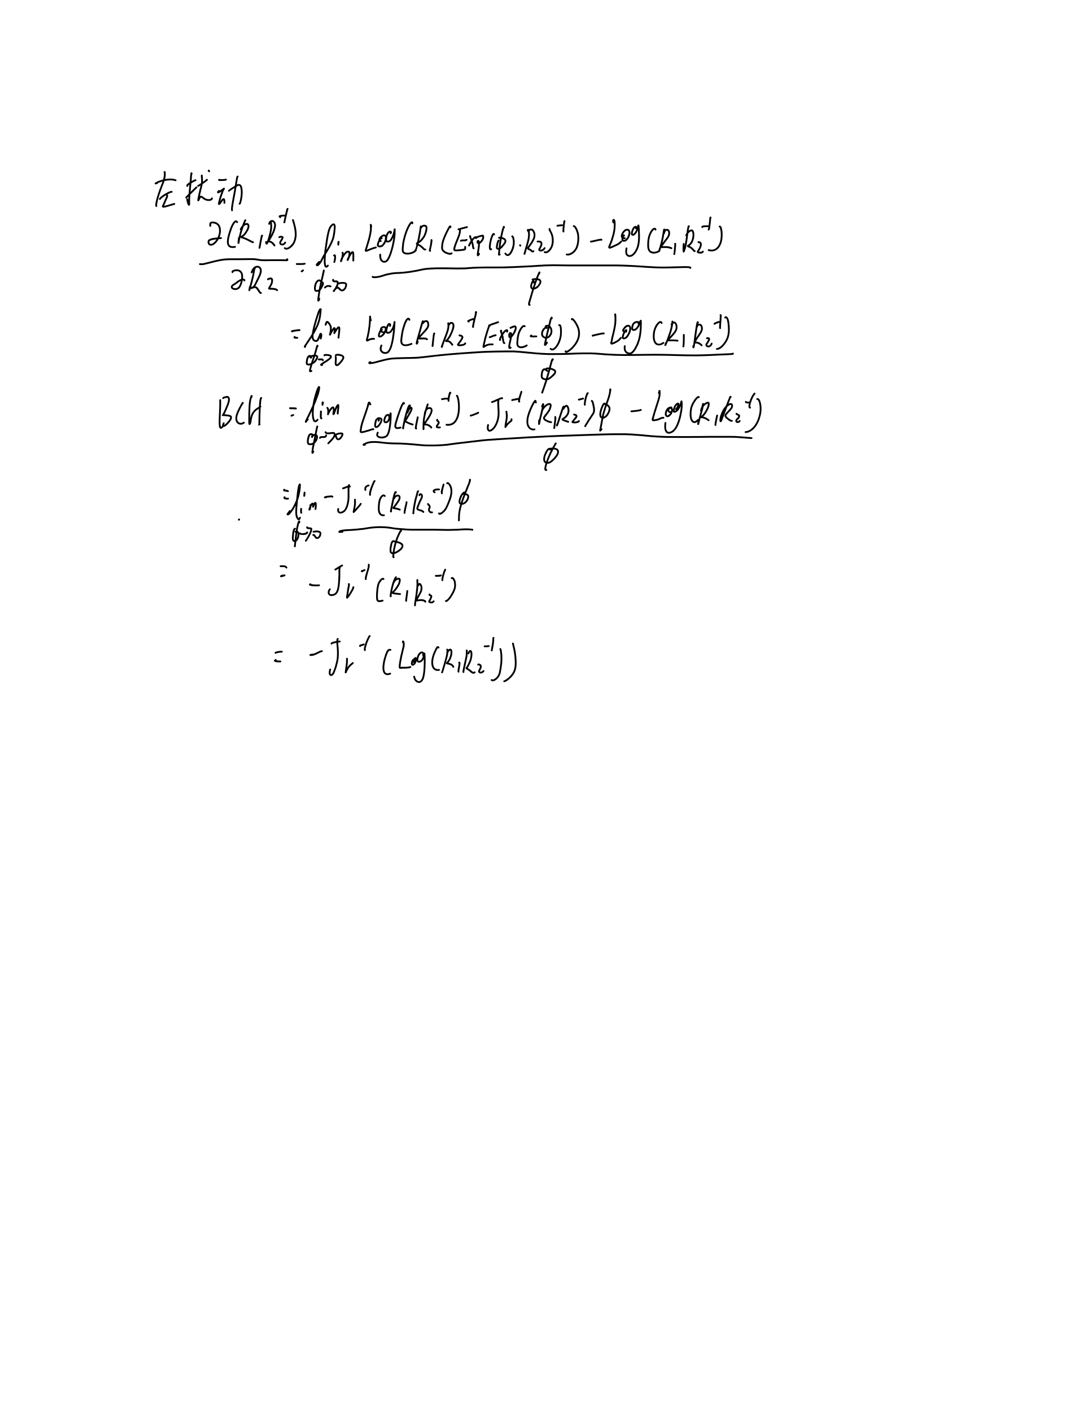 左扰动
∂(R₁R₂⁻¹)/∂R₂ = lim_{φ→0} (Log(R₁(Exp(φ)·R₂)⁻¹) - Log(R₁R₂⁻¹))/φ
= lim_{φ→0} (Log(R₁R₂⁻¹Exp(-φ)) - Log(R₁R₂⁻¹))/φ
BCH = lim_{φ→0} (Log(R₁R₂⁻¹) - Jr⁻¹(R₁R₂⁻¹)φ - Log(R₁R₂⁻¹))/φ
= lim_{φ→0} -Jr⁻¹(R₁R₂⁻¹)φ/φ
= -Jr⁻¹(R₁R₂⁻¹)
= -Jr⁻¹(Log(R₁R₂⁻¹))